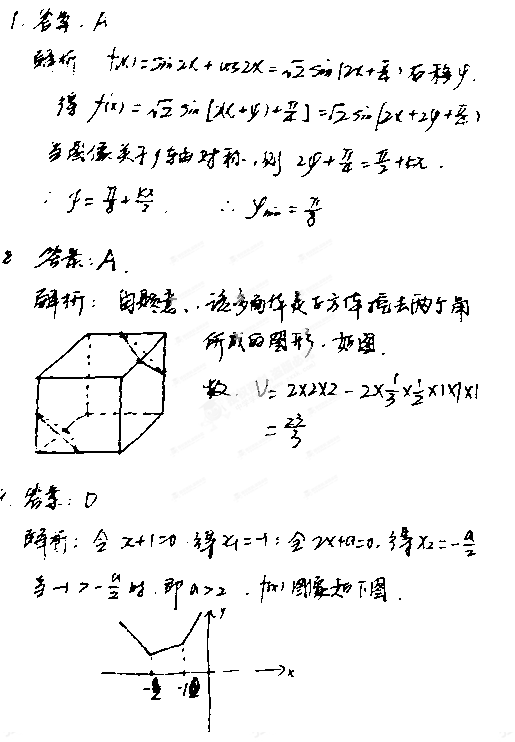 1. 答案：A
解析 f(x)=sin2x+cos2x=√2sin(2x+π/4)，右移φ.
得 f(x)=√2sin[2(x+φ)+π/4]=√2sin(2x+2φ+π/4)
当图像关于y轴对称，则 2φ+π/4=π/2+kπ.
∴ φ=π/8+kπ/2. ∴ φmin=π/8
2 答案：A.
解析：由题意，该多面体是正方体挖去两个角
所成的图形，如图.
故 V=2×2×2-2×1/3×1/2×1×1×1
=23/3
答案：D
解析：令 x+1=0 得x₁=-1；令 2x+a=0，得x₂=-a/2
当 -1>-a/2 时，即 a>2，f(x)图象如下图.
y
-a/2 -1 x